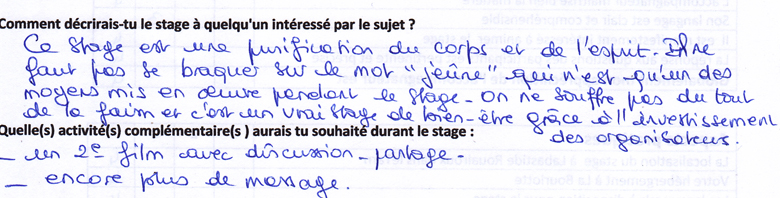 Comment décrirais-tu le stage à quelqu'un intéressé par le sujet ?
Ce stage est une purification du corps et de l'esprit. Il ne
faut pas se braquer sur le mot "jeûne" qui n'est qu'un des
moyens mis en œuvre pendant le stage. On ne souffre pas du tout
de la faim et c'est un vrai stage de bien-être grâce à l'investissement
des organisateurs.
Quelle(s) activité(s) complémentaire(s ) aurais tu souhaité durant le stage :
_ un 2e film avec discussion-partage.
_ encore plus de massage.